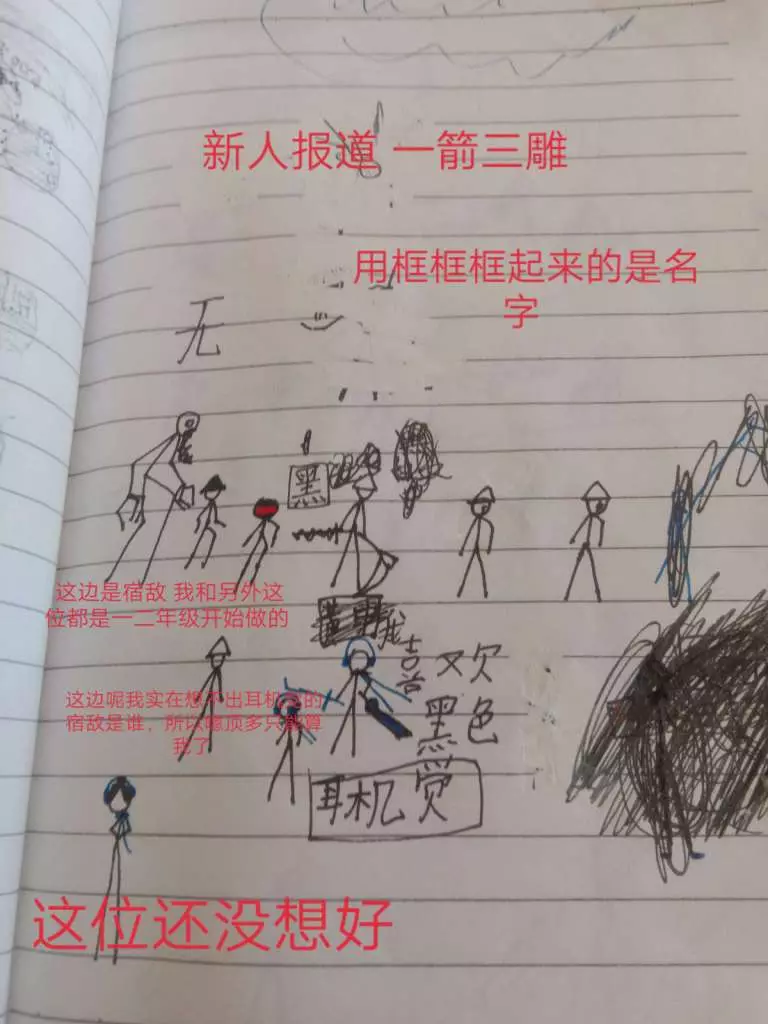 新人报道 一箭三雕
用框框框起来的是名
字
无
黑
这边是宿敌 我和另外这
位都是一二年级开始做的
我
喜欢
黑色
这边呢我实在想不出耳机
宿敌是谁，所以
我了
耳机
这位还没想好